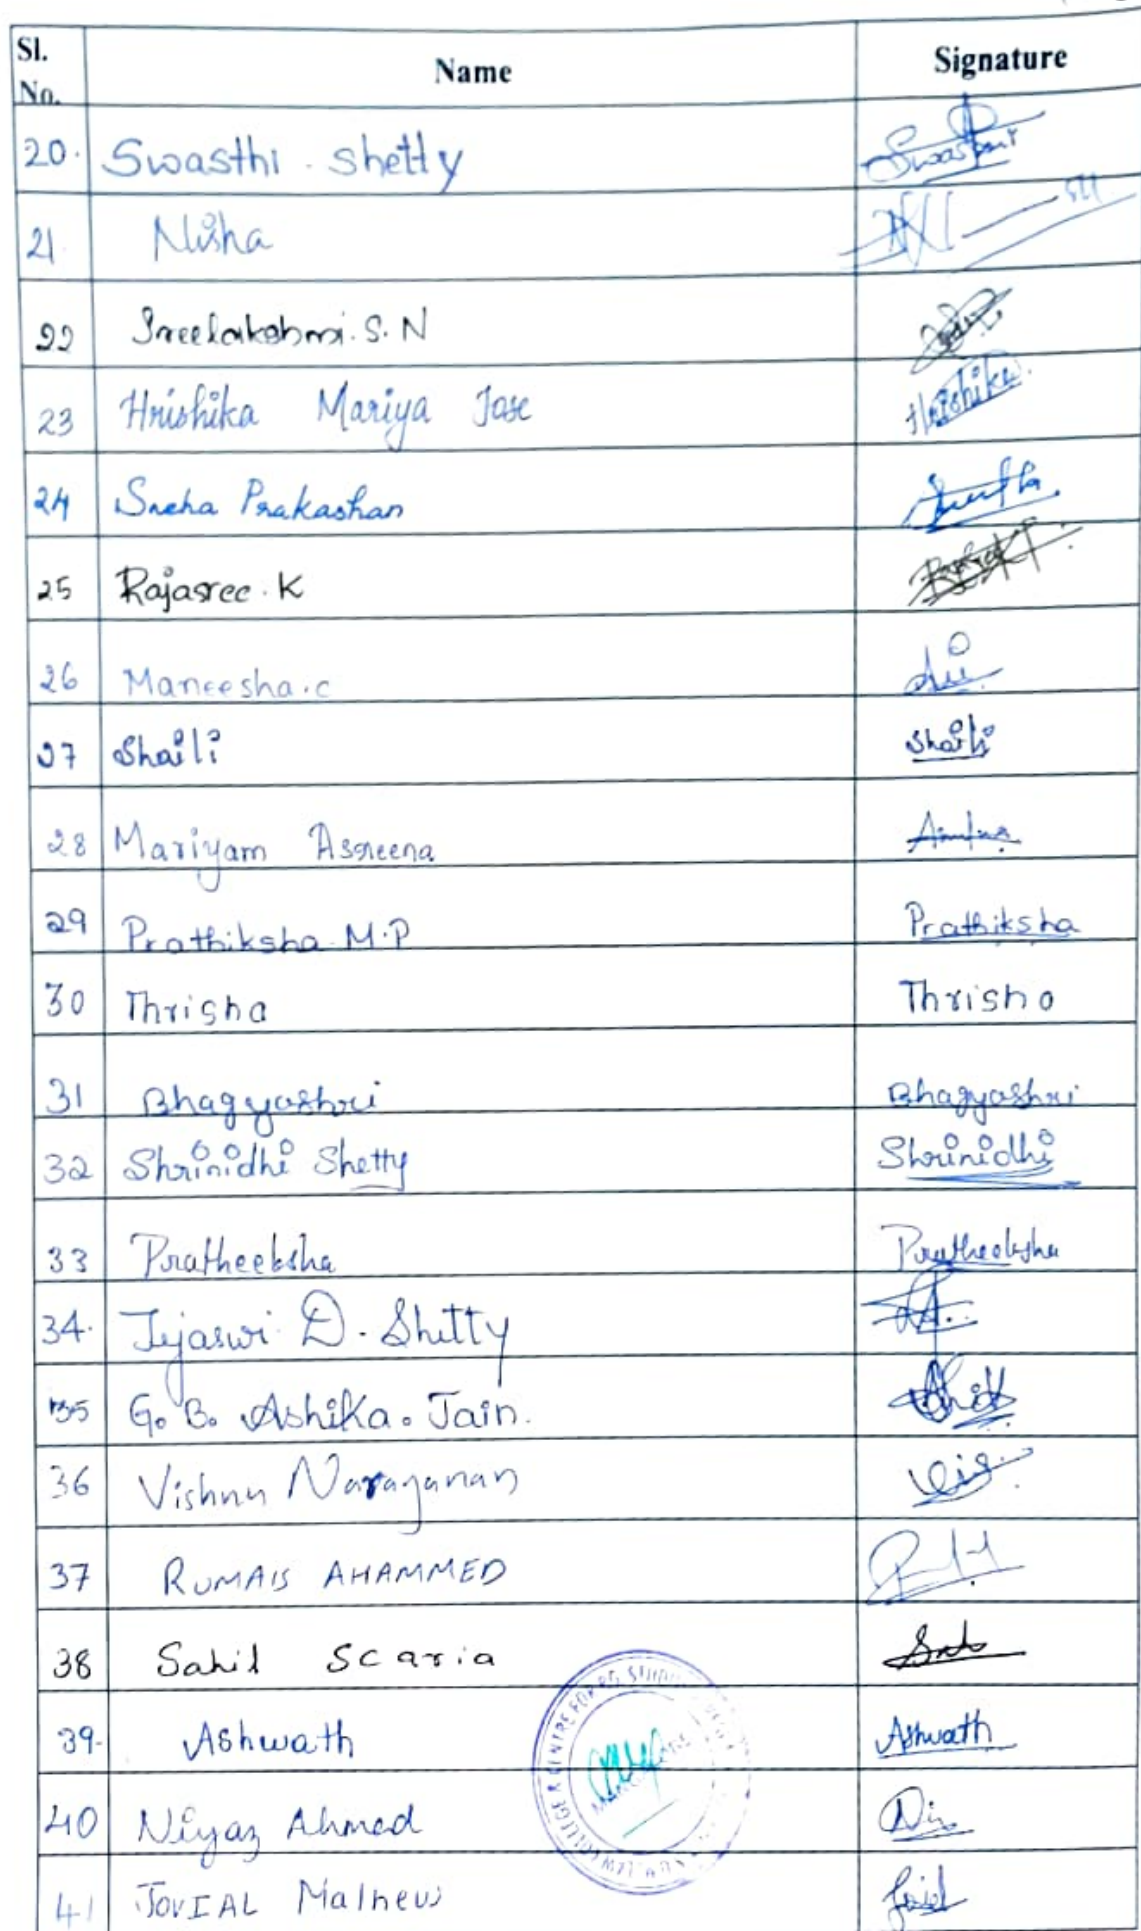 Sl. No. Name Signature
20. Swasthi . Shetty Swasthi
21. Nisha
22 Sreelakshmi. S. N
23 Hrishika Mariya Jose Hrishika
24 Sneha Prakashan
25 Rajasree . K
26 Maneesha . c
27 Shaili Shaili
28 Mariyam Asreena
29 Prathiksha M.P Prathiksha
30 Thrisha Thrisha
31 Bhagyashri Bhagyashri
32 Shrinidhi Shetty Shrinidhi
33 Pratheeksha Pratheeksha
34. Tejaswi D. Shetty
35 G. B. Ashika. Jain.
36 Vishnu Narayanan
37 RUMAIS AHAMMED
38 Sahil Scaria
39. Ashwath Ashwath
40 Niyaz Ahmed
41 JOVIAL Mathew
LAW COLLEGE & CENTRE FOR PG